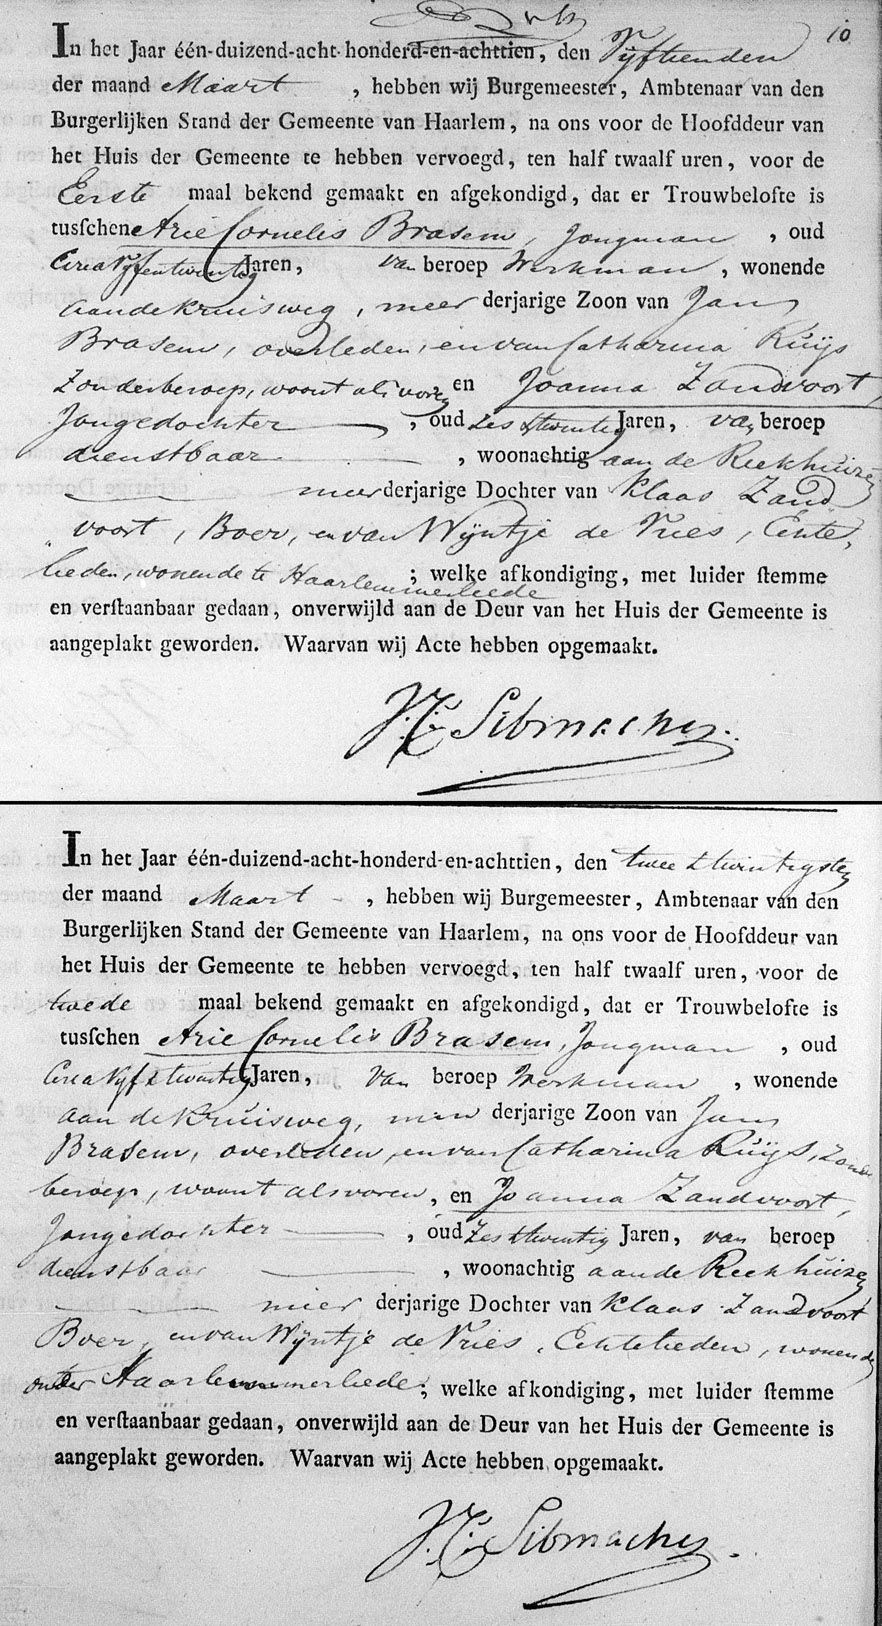 10
In het Jaar één-duizend-acht-honderd-en-achttien, den Vyftienden
der maand Maart , hebben wij Burgemeester, Ambtenaar van den
Burgerlijken Stand der Gemeente van Haarlem, na ons voor de Hoofddeur van
het Huis der Gemeente te hebben vervoegd, ten half twaalf uren, voor de
Eerste maal bekend gemaakt en afgekondigd, dat er Trouwbelofte is
tusſchen Arie Cornelis Brasem, Jongman , oud
Circa Vyfentwintig Jaren, van beroep Werkman , wonende
aan de Kruisweg, meer derjarige Zoon van Jan
Brasem, overleden, en van Catharina Ruijs
Zonder beroep, woont als voren en Joanna Zandvoort,
Jongedochter , oud Zes & twintig Jaren, van beroep
dienstbaar , woonachtig aan de Reekhuizen
meer derjarige Dochter van Klaas Zand
voort, Boer, en van Wijntje de Vries, Echte-
lieden, wonende te Haarlemmerleede ; welke afkondiging, met luider ſtemme
en verſtaanbaar gedaan, onverwijld aan de Deur van het Huis der Gemeente is
aangeplakt geworden. Waarvan wij Acte hebben opgemaakt.
J.C. Sibmacher
In het Jaar één-duizend-acht-honderd-en-achttien, den twee & twintigsten
der maand Maart , hebben wij Burgemeester, Ambtenaar van den
Burgerlijken Stand der Gemeente van Haarlem, na ons voor de Hoofddeur van
het Huis der Gemeente te hebben vervoegd, ten half twaalf uren, voor de
twede maal bekend gemaakt en afgekondigd, dat er Trouwbelofte is
tusſchen Arie Cornelis Brasem, Jongman , oud
Circa Vyf & twintig Jaren, van beroep Werkman , wonende
aan de Kruisweg, meer derjarige Zoon van Jan
Brasem, overleden, en van Catharina Ruijs, Zonder
beroep, woont als voren, en Joanna Zandvoort,
Jongedochter , oud Zes & twintig Jaren, van beroep
dienstbaar , woonachtig aan de Reekhuizen
meer derjarige Dochter van Klaas Zandvoort
Boer, en van Wijntje de Vries, Echtelieden, wonende
onder Haarlemmerliede ; welke afkondiging, met luider ſtemme
en verſtaanbaar gedaan, onverwijld aan de Deur van het Huis der Gemeente is
aangeplakt geworden. Waarvan wij Acte hebben opgemaakt.
J.C. Sibmacher